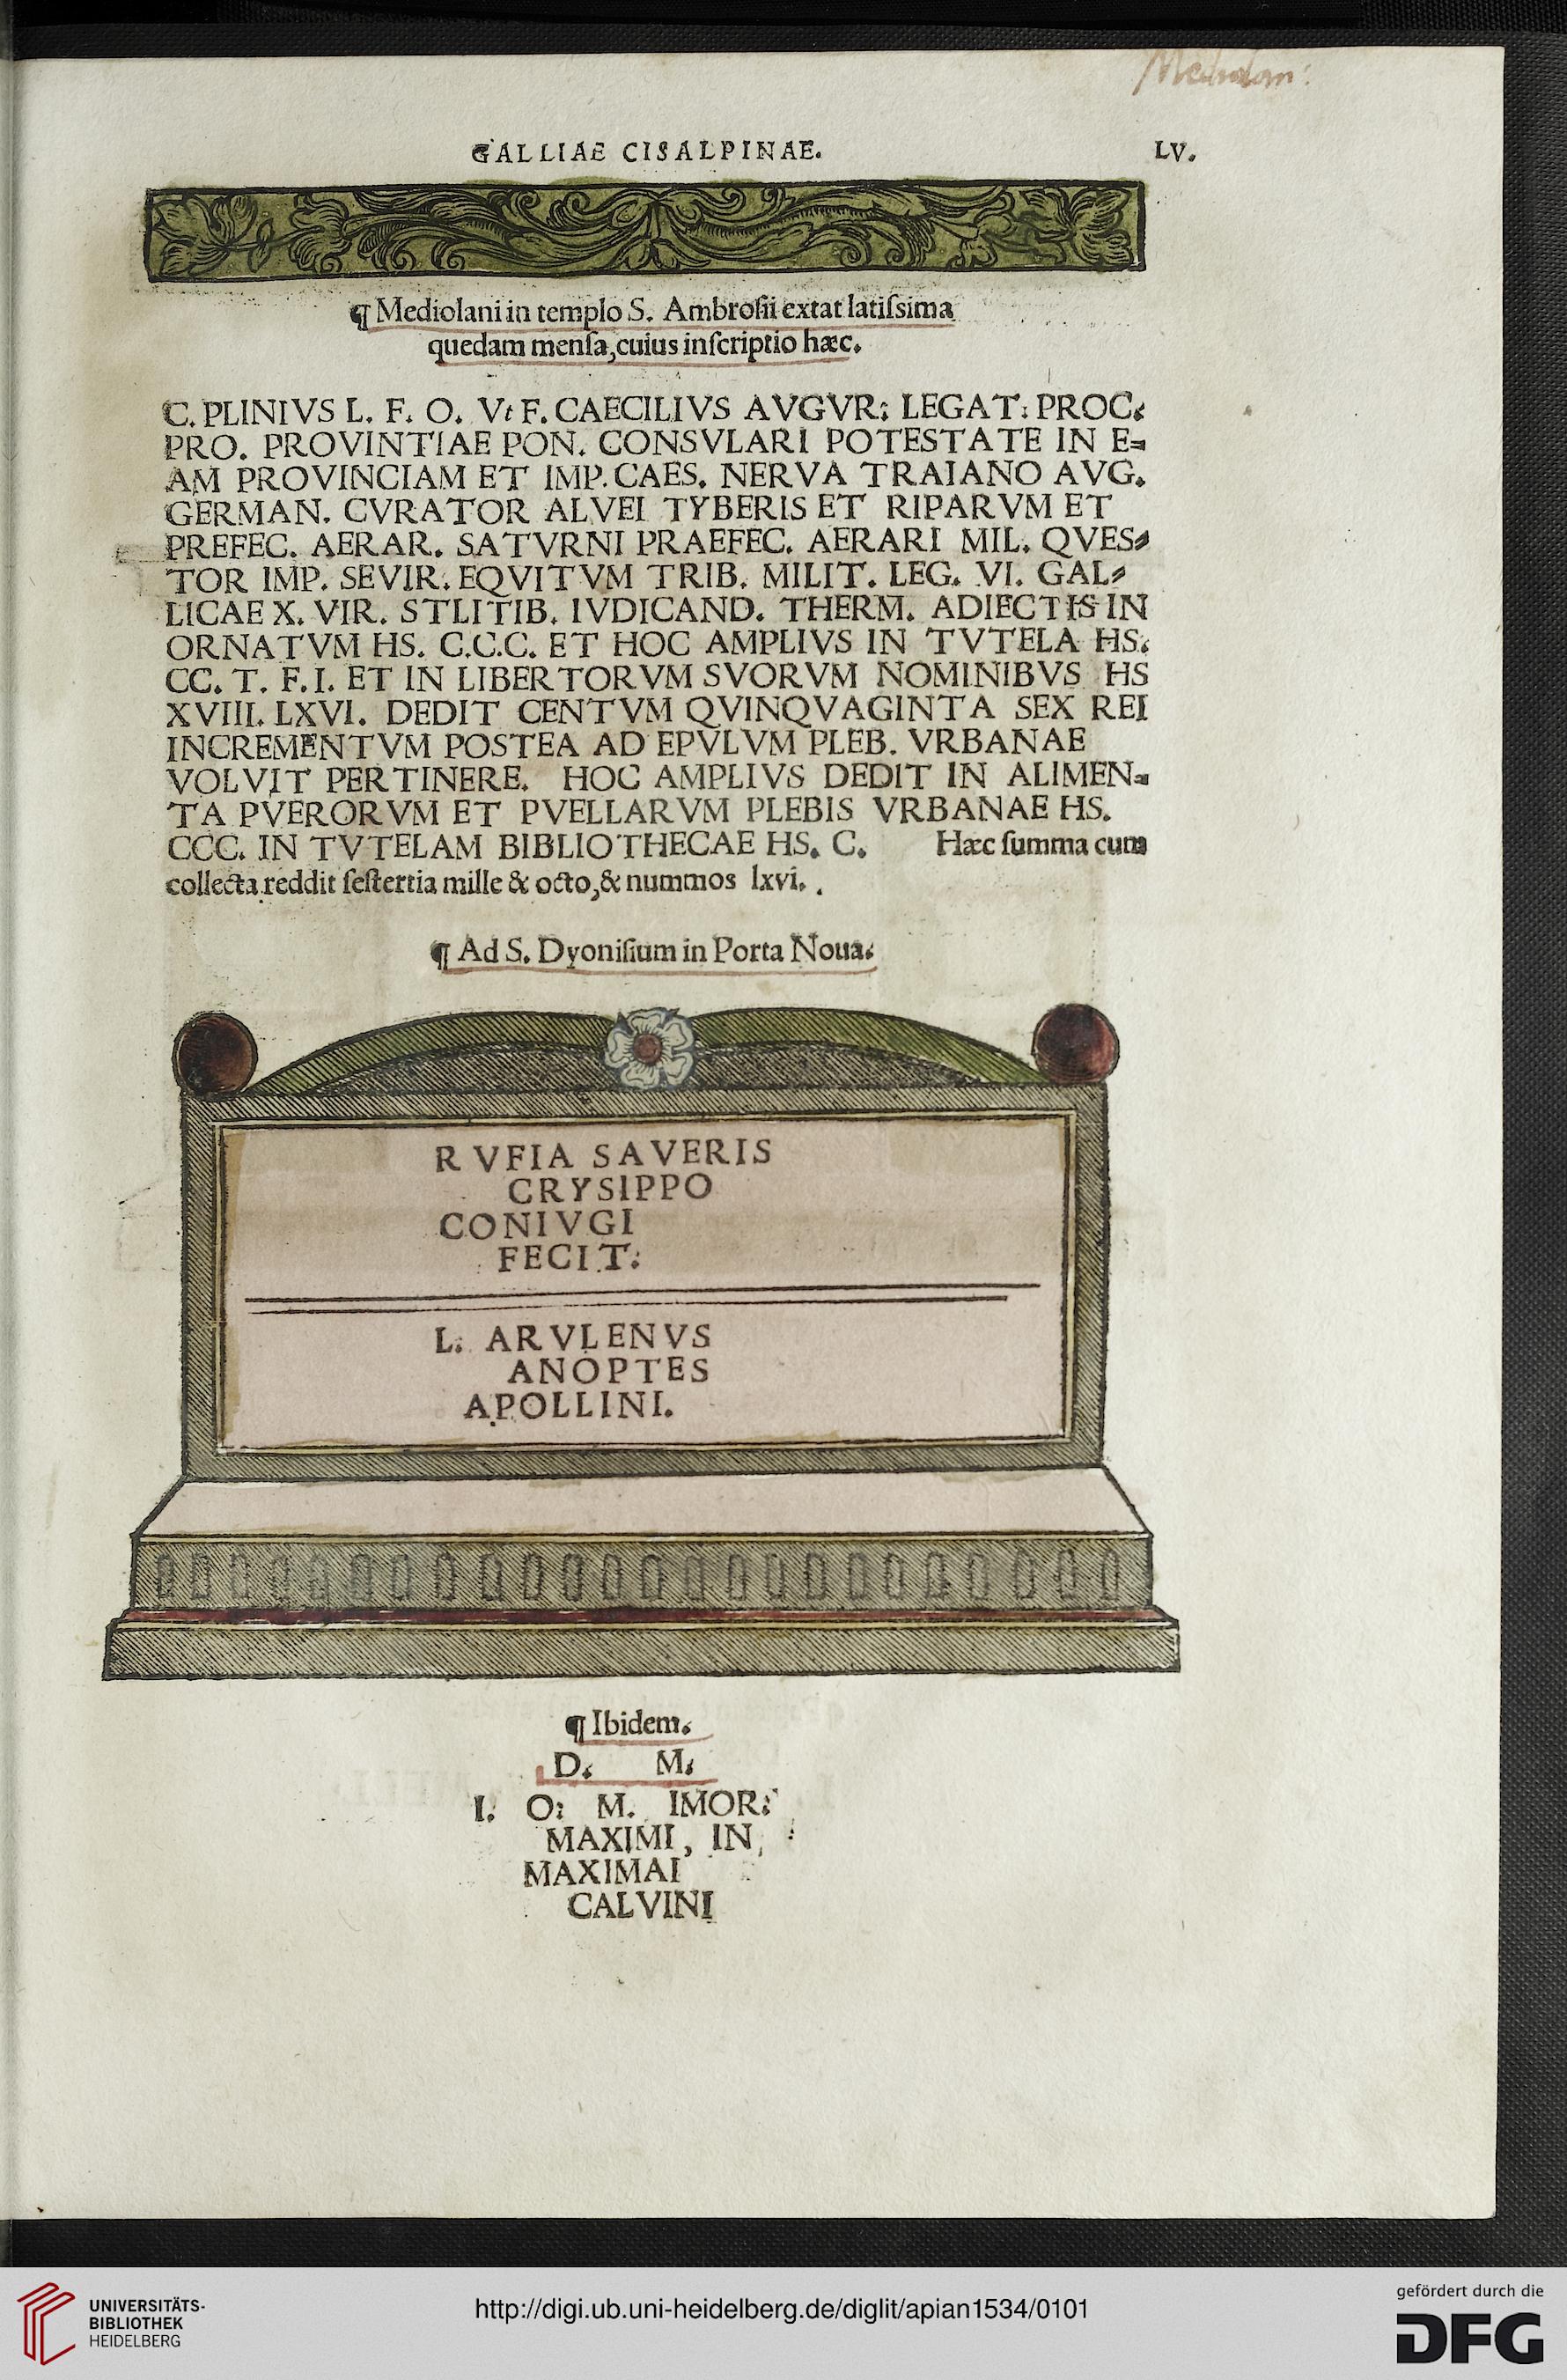 Mediolan:
GALLIAE CISALPINAE. LV.
¶ Mediolani in templo S. Ambrosii extat latiſsima
quedam menſa, cuius inſcriptio hæc.
C. PLINIVS L. F. O. V. F. CAECILIVS AVGVR: LEGAT: PROC.
PRO. PROVINTIAE PON. CONSVLARI POTESTATE IN E=
AM PROVINCIAM ET IMP. CAES. NERVA TRAIANO AVG.
GERMAN. CVRATOR ALVEI TYBERIS ET RIPARVM ET
PREFEC. AERAR. SATVRNI PRAEFEC. AERARI MIL. QVES=
TOR IMP. SEVIR. EQVITVM TRIB. MILIT. LEG. VI. GAL=
LICAE X. VIR. STLITIB. IVDICAND. THERM. ADIECTIS IN
ORNATVM HS. C.C.C. ET HOC AMPLIVS IN TVTELA HS.
CC. T. F. I. ET IN LIBERTORVM SVORVM NOMINIBVS HS
XVIII. LXVI. DEDIT CENTVM QVINQVAGINTA SEX REI
INCREMENTVM POSTEA AD EPVLVM PLEB. VRBANAE
VOLVIT PERTINERE. HOC AMPLIVS DEDIT IN ALIMEN=
TA PVERORVM ET PVELLARVM PLEBIS VRBANAE HS.
CCC. IN TVTELAM BIBLIOTHECAE HS. C. Hæc ſumma cum
collecta reddit ſeſtertia mille & octo, & nummos lxvi.
¶ Ad S. Dyoniſium in Porta Noua.
RVFIA SAVERIS
CRYSIPPO
CONIVGI
FECIT:
L. ARVLENVS
ANOPTES
APOLLINI.
¶ Ibidem.
D. M.
I. O: M. IMOR:
MAXIMI, IN
MAXIMAI
CALVINI
UNIVERSITÄTS-
BIBLIOTHEK
HEIDELBERG
http://digi.ub.uni-heidelberg.de/diglit/apian1534/0101
gefördert durch die
DFG